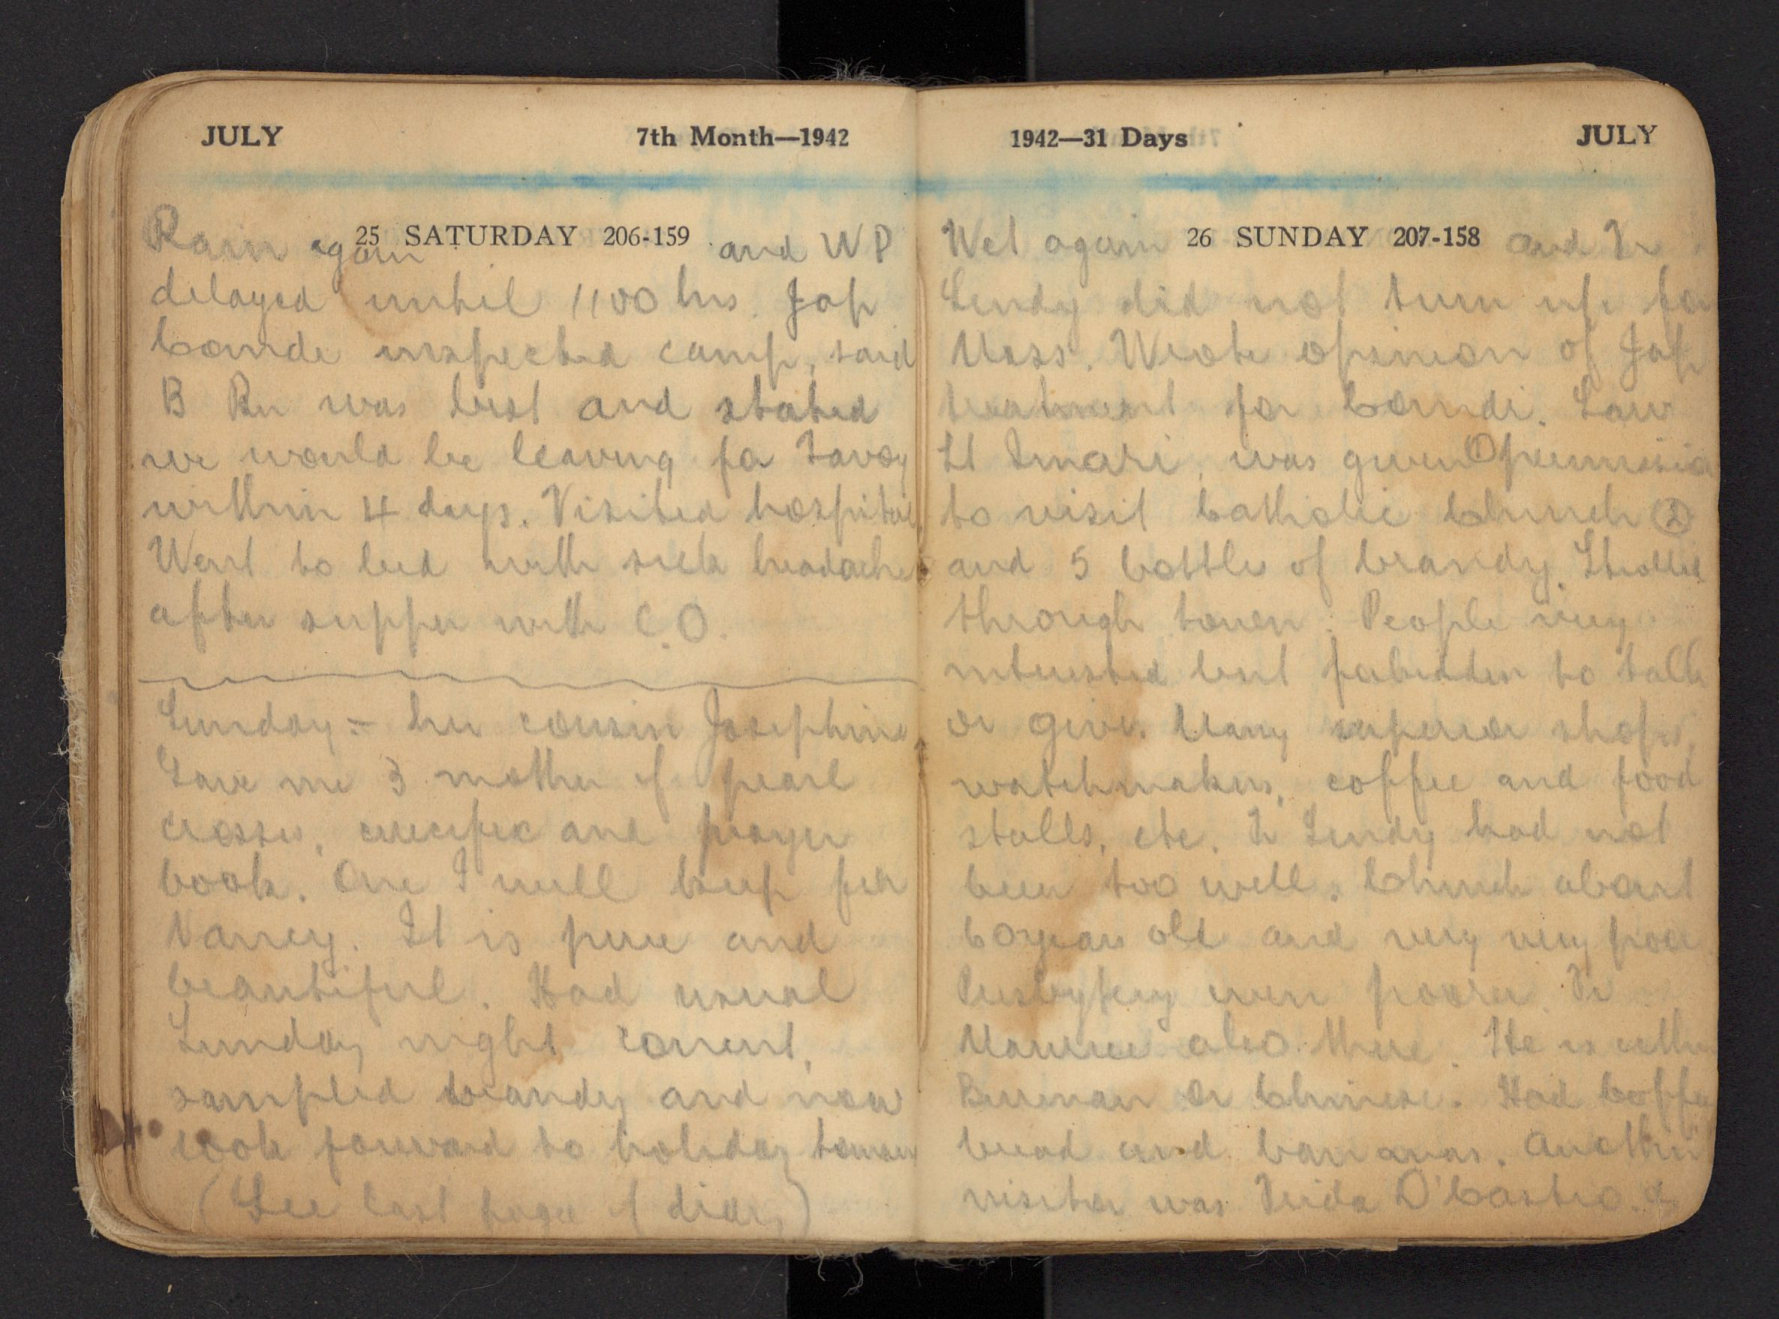 JULY 7th Month—1942
25 SATURDAY 206-159
Rain again and WP
delayed until 1100 hrs. Jap
Comdr inspected camp, said
B Bn was best and stated
we would be leaving for Tavoy
within 4 days. Visited hospital.
Went to bed with sick headache
after supper with C.O.
Sunday:- her cousin Josephine
Gave me 3 mother of pearl
crosses, crucifix and prayer
book. One I will keep for
Nancy. It is pure and
beautiful. Had usual
Sunday night concert,
sampled brandy and now
look forward to holiday tomorrow
(See last page of diary)
1942—31 Days JULY
26 SUNDAY 207-158
Wet again and Fr
Lindy did not turn up for
Mass. Wrote opinion of Jap
treatment for Comdr. Saw
Lt Imari, was given ① permission
to visit Catholic Church ②
and 5 bottles of brandy. Strolled
through town. People very
interested but forbidden to talk
or give. Many superior shops,
watchmakers, coffee and food
stalls, etc. Fr Lindy had not
been too well. Church about
60 years old and very very poor
Presbytery even poorer. Fr
Maurice also there. He is either
Burman or Chinese. Had coffee
bread and bananas. Another
visitor was Frida D'Castro. &